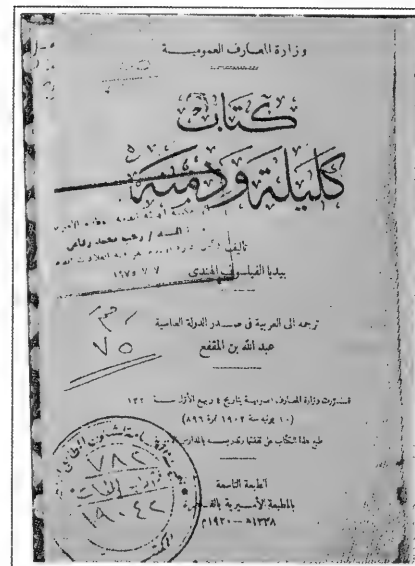 وزارة المعارف العمومية
كتاب
كليلة ودمنة
تأليف
بيدبا الفيلسوف الهندى
١٩٧٥ / ٧ / ٧
ترجمه إلى العربية فى صدر الدولة العباسية
عبد الله بن المقفع
٧٥
قررت وزارة المعارف المصرية بتاريخ ٤ ربيع الأول سنة ١٣٢
(١٠ يونيه سنة ١٩٠٣ نمرة ٨٩٦)
طبع هذا الكتاب على نفقتها وتدريسه بالمدارس
الطبعة التاسعة
بالمطبعة الأميرية بالقاهرة
١٣٣٨ه – ١٩٢٠م
٧٨٢
١٩٠٤٢